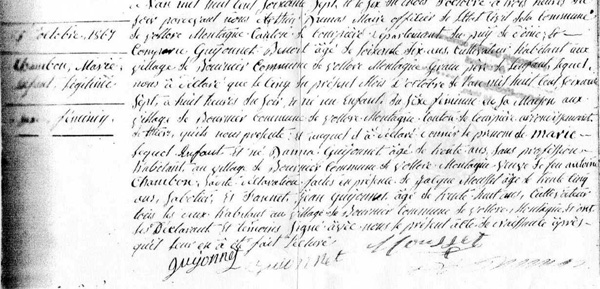 L'an mil huit cent Soixante Sept, le six du mois d'octobre à trois heures du
Soir pardevant nous Dumas Maire officier de l'état Civil de la Commune
de Vollore Montagne Canton de Courpière département du puy de Dôme, est
Comparu Guyonnet Benoit âgé de Soixante Six ans, Cultivateur habitant au
village de Bournier Commune de Vollore Montagne Grand père de l'enfant, lequel
nous a déclaré que le Cinq du présent Mois d'octobre de l'an mil huit Cent Soixante
Sept, à huit heures du Soir, il est né un Enfant du Sexe féminin en Sa Maison au
village de Bournier Commune de Vollore Montagne Canton de Courpière arrondissement
de Thiers, qu'ils nous présente et auquel il a déclaré donner le prénom de Marie
lequel Enfant Est né Guyonnet âgée de trente ans, Sans profession
habitant au village de Bournier Commune de Vollore Montagne Veuve de feu antoine
Chambon, faite déclaration faites en présence de Mousset âgé de trente Cinq
ans, Sabotier, Et Jean Guyonnet, âgé de trente huit ans, Cultivateur
tous les deux habitant au village de Bournier Commune de Vollore Montagne, Et ont
les Déclarant et témoins Signé avec nous le présent acte de naissance après
qu'il leur en a été fait lecture
5 octobre 1867
Chambon, Marie
enfant légitime
féminin
Guyonnet Mousset